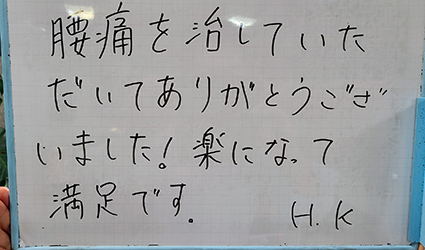 腰痛を治していた
だいてありがとうござ
いました!楽になって
満足です.
H.K